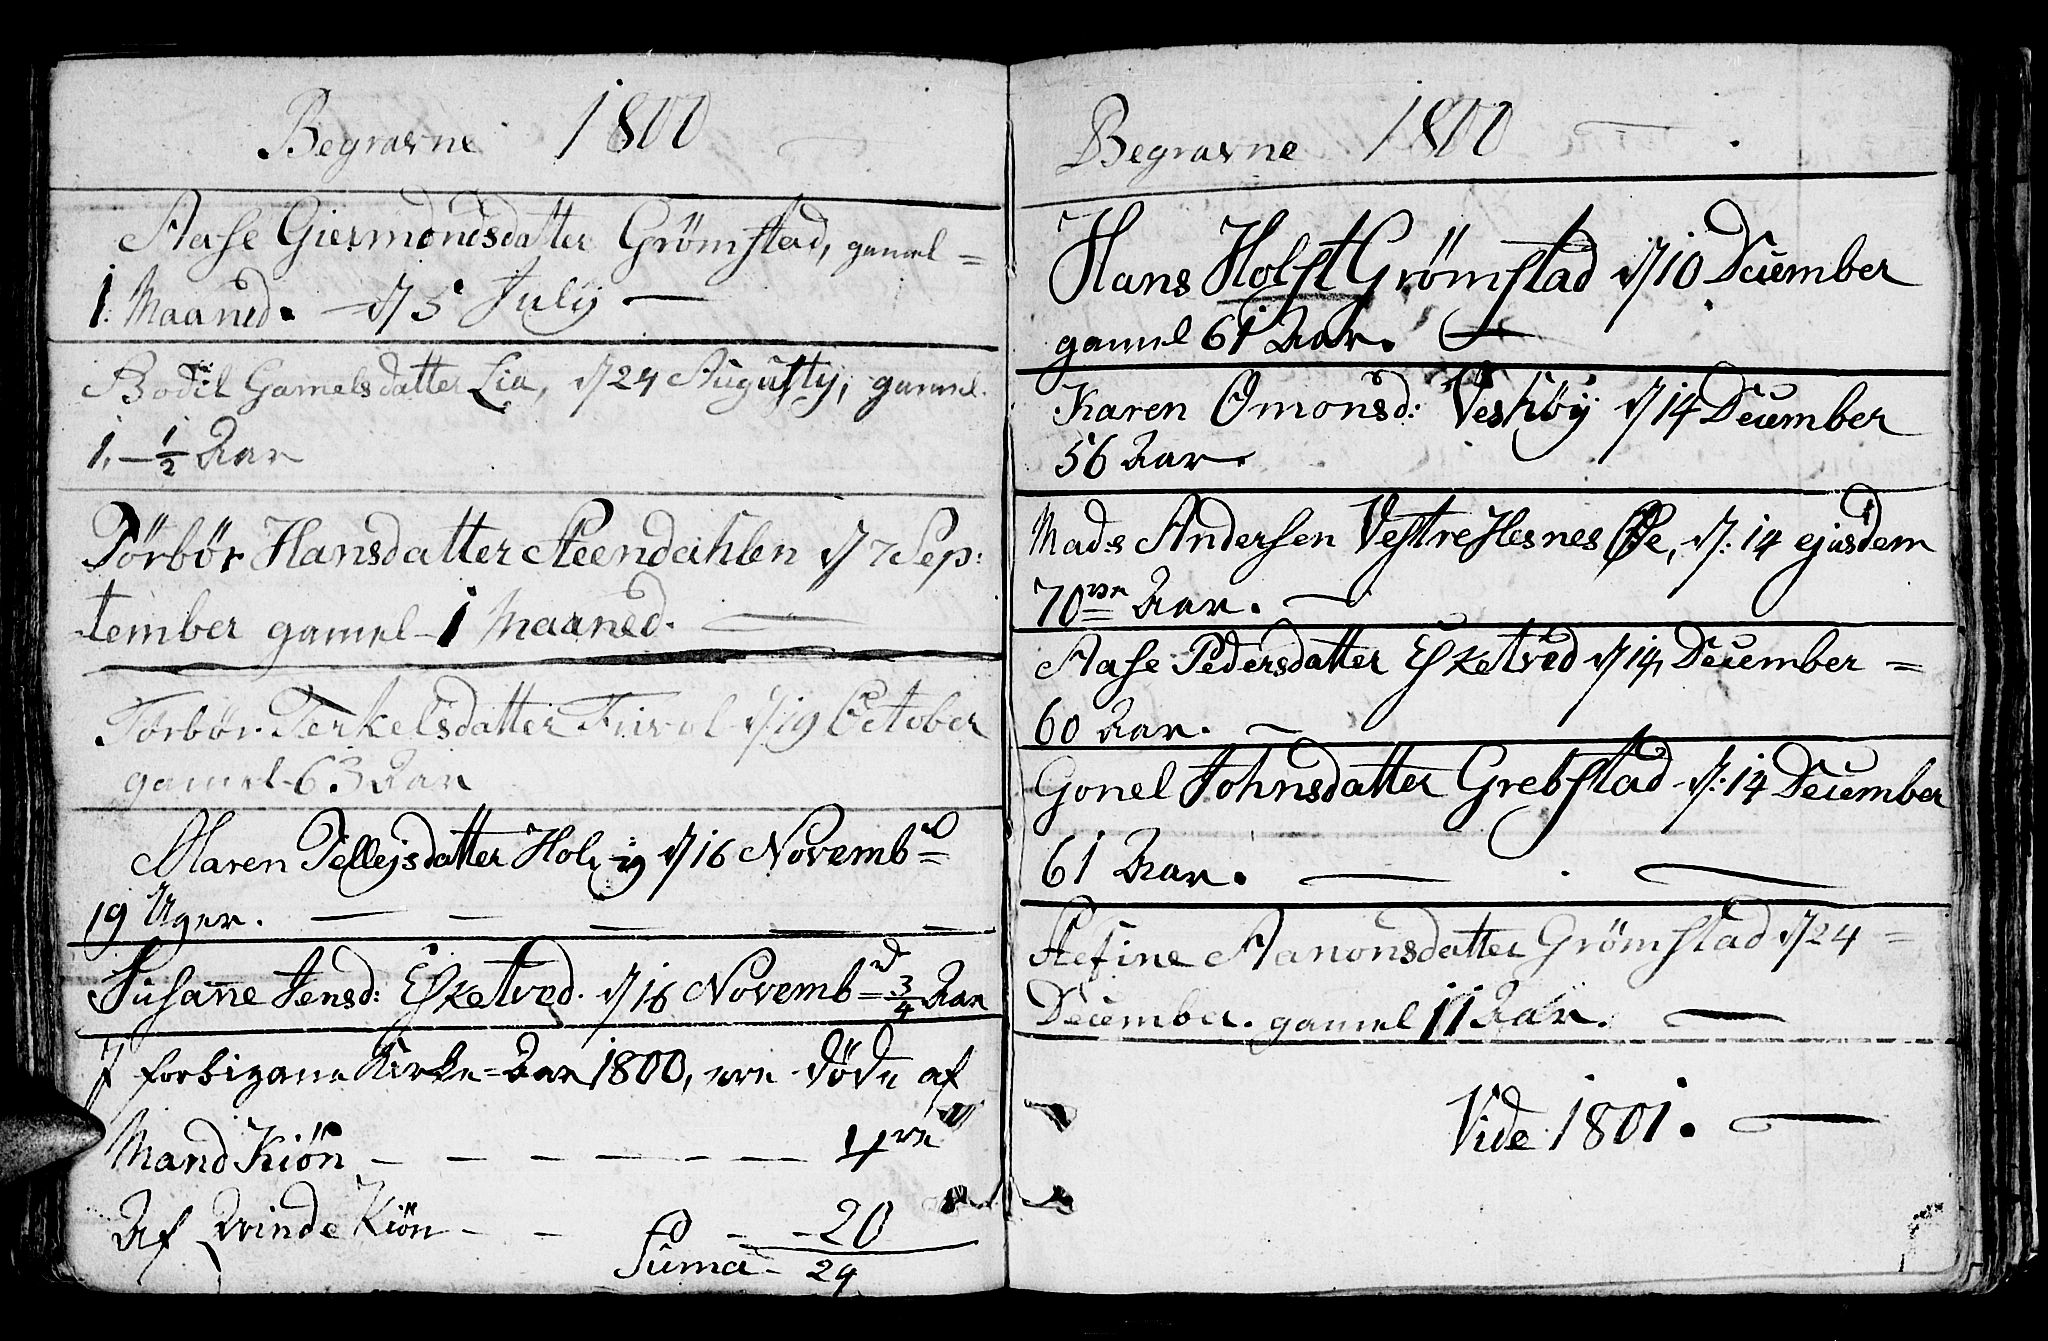 Begravne 1800
Aase Giermondsdatter Grömstad, gamel =
1. Maaned. — d 5 July —
Bodil Gamelsdatter Lia, d 24 Augusty, gamel.
1. — 1/2 Aar
Törbör Hansdatter Steendahlen d 7 Sep:
tember gamel 1 Maaned. —
Torbör Terkelsdatter d 19 October
gamel 63 Aar
Maren Tellejsdatter d 16 Novembr
19 Uger. — — — — —
Susanne Jensd: Esketved. d 16 Novembr = 3/4 Aar
I forbigane Kirke = Aar 1800, ere döde af
Mand Kiön — — — — — — 4re
Af Qvinde Kiön — — — — 20
Suma — 24
Begravne 1800 — .
Hans Holst Grömstad d 10 December
gamel 61 Aar. —
Karen Omonsd: Veshöy d 14 December
56 Aar.
Mads Andersen Vestre Hesnes Öe, d: 14 ejusdem
70ve Aar. —
Aase Pedersdatter Esketved d 14 December =
60 Aar. —
Gonel Johnsdatter Grebstad d: 14 December
61 Aar. — . —
Stefine Aanonsdatter Grömstad d 24 =
December. gamel 11 Aar. —
Vide 1801. —